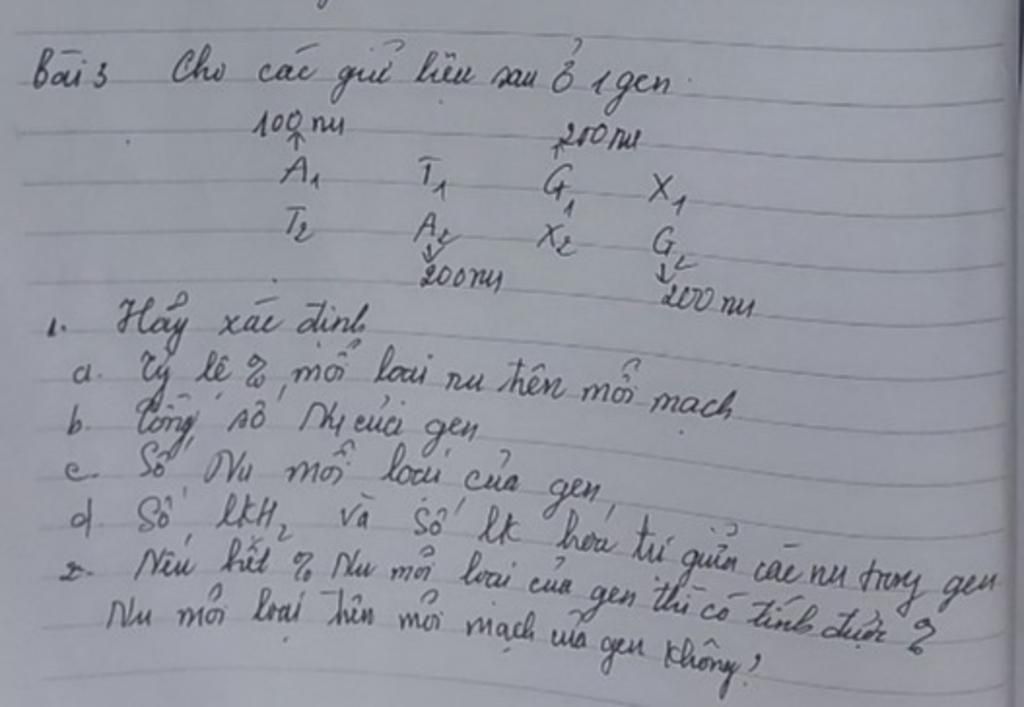 Bài 3 Cho các giữ liệu sau ở 1 gen
100 nu 200 nu
A1 T1 G1 X1
T2 A2 X2 G2
200 nu 200 nu
1. Hãy xác định
a. Tỷ lệ % mỗi loại nu trên mỗi mạch
b. Tổng số Nu của gen
c. Số Nu mỗi loại của gen
d. Số lkH2 và số lk hóa trị giữa các nu trong gen
2. Nếu biết % Nu mỗi loại của gen thì có tính được %
Nu mỗi loại trên mỗi mạch của gen không?